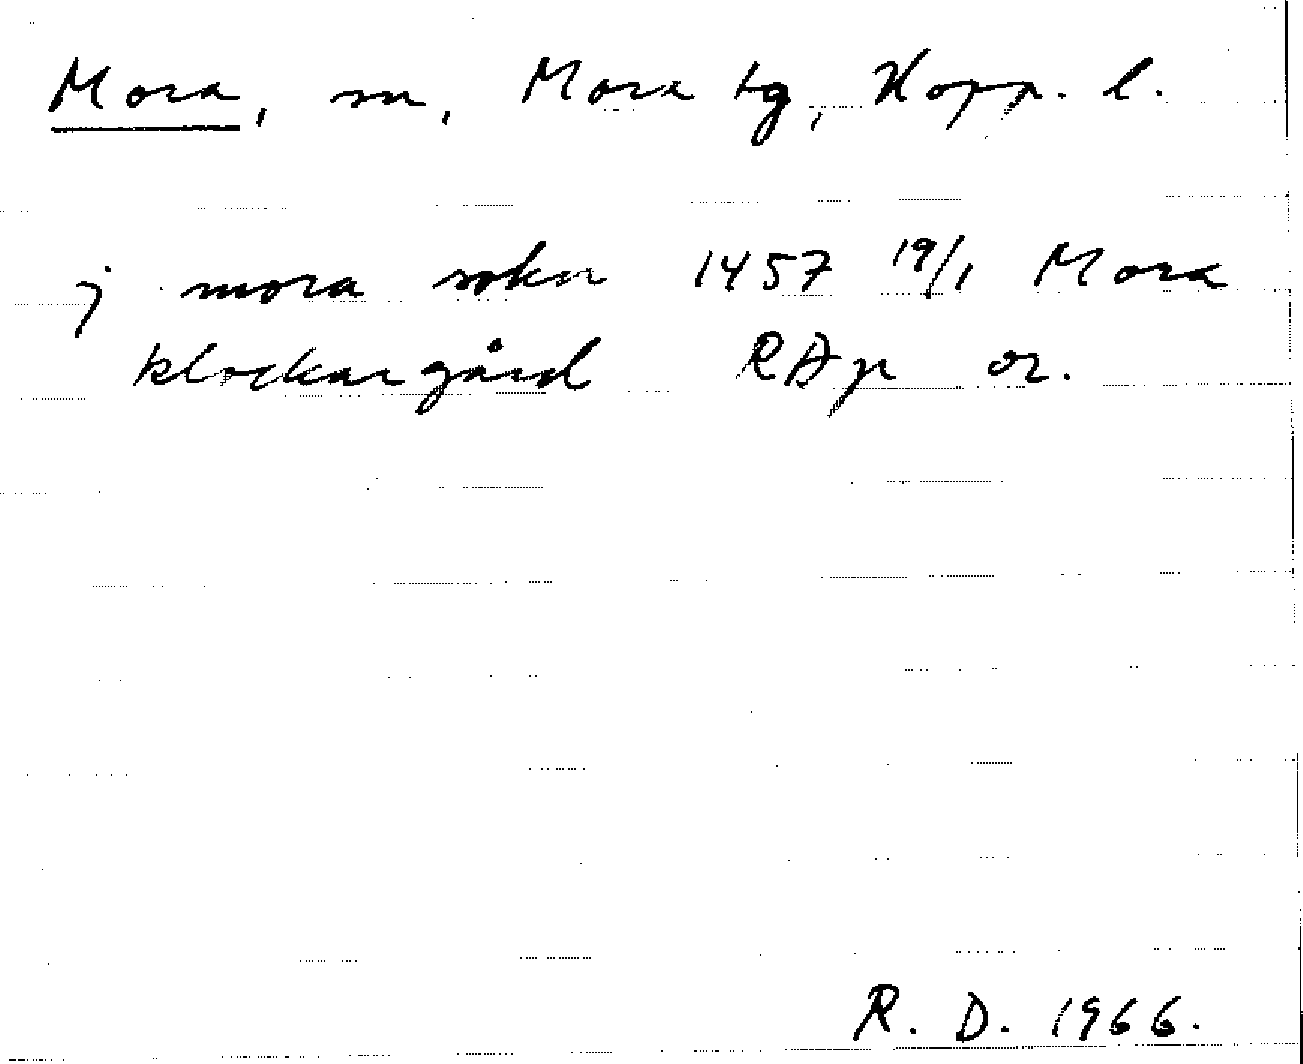 Mora, sn, Mora tg, Kopp. l.
j mora sokn 1457 19/1 Mora
klockargård RAp or.
R. D. 1966.